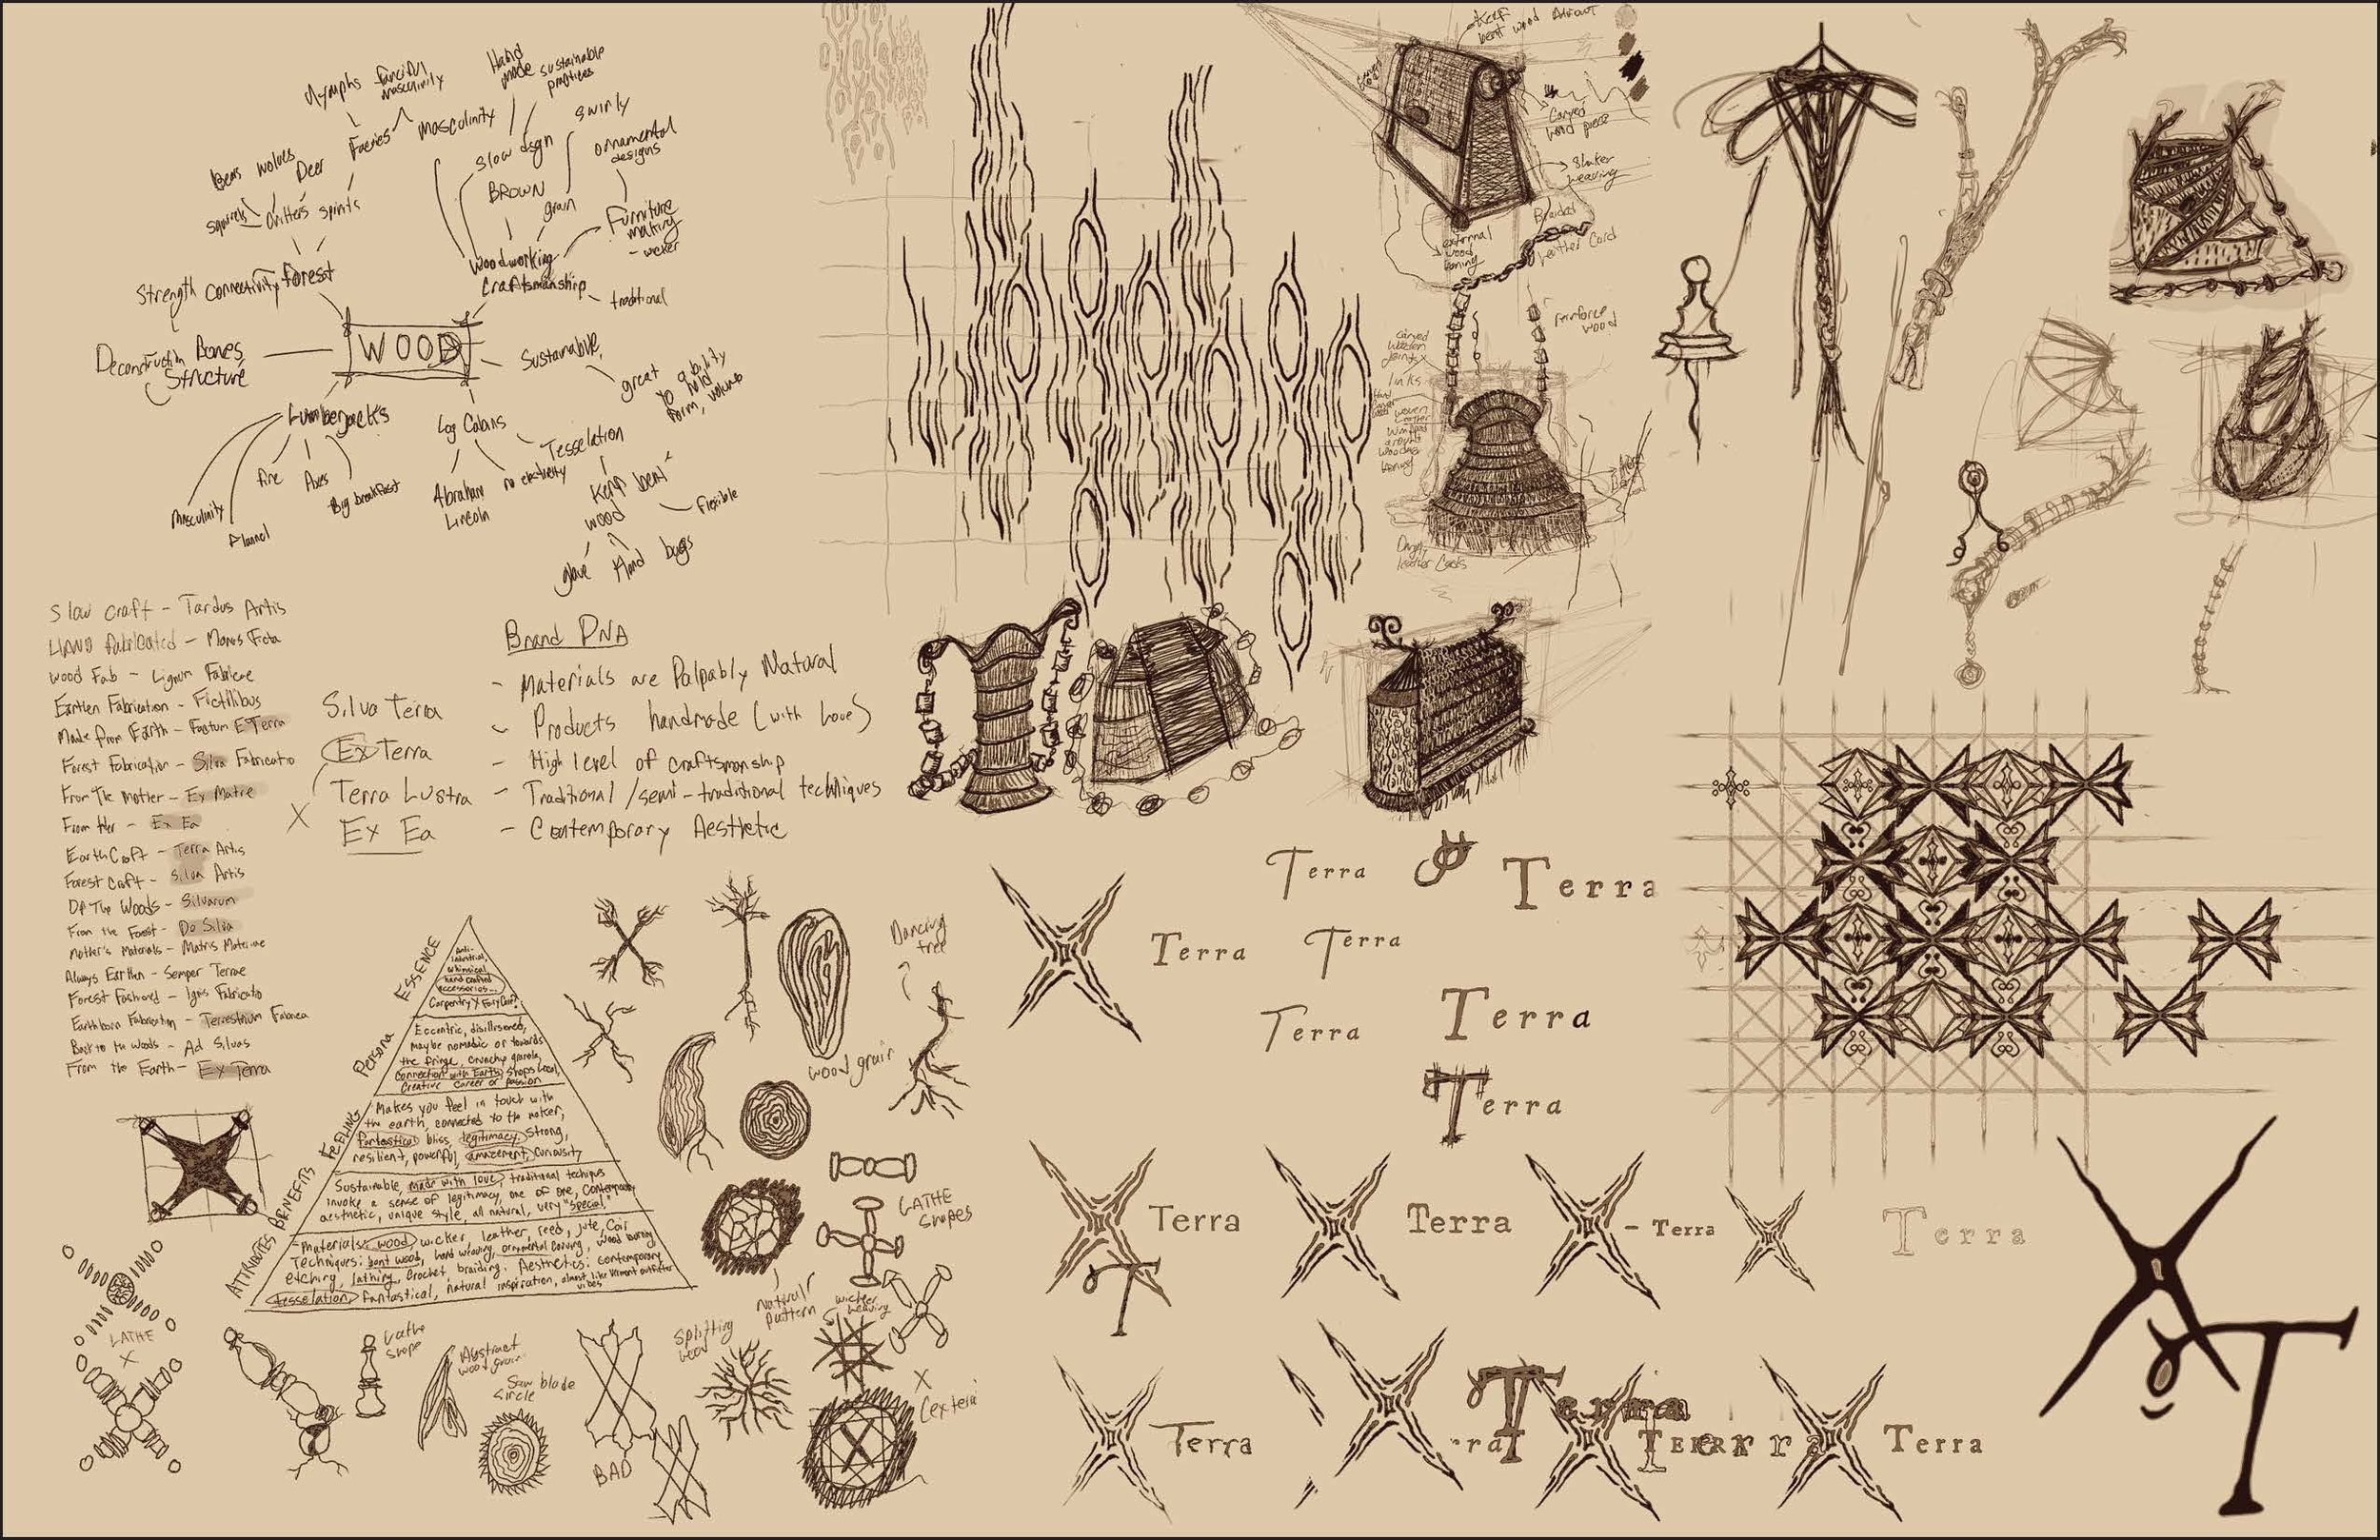 Nymphs
fanciful
masculinity
Hand
made
sustainable
practices
Faeries
masculinity
swirly
Bears
wolves
Deer
slow dsgn
ornamental
designs
squirrels
critters
spirits
BROWN
grain
Furniture
making
- wicker
Woodworking
Craftsmanship
traditional
Strength
Connectivity
forest
WOOD
Deconstruction
Bones
Structure
Sustainable
great
ability
to hold
form, volume
Lumberjacks
Log Cabins
Tesselation
Fire
Axes
Big breakfast
Masculinity
Flannel
Abraham
Lincoln
no electricity
Kerf bent
wood
flexible
glove
Hand bags
Slow craft - Tardus Artis
HAND fabricated - Manus Ficta
Wood Fab - Lignum Fabricae
Earthen Fabrication - Fictilibus
Made from Earth - Factum E Terra
Forest Fabrication - Silva Fabricatio
From The Mother - Ex Matre
From Her - Ex Ea
EarthCraft - Terra Artis
Forest Craft - Silva Artis
Of The Woods - Silvarum
From the Forest - De Silva
Mother's Materials - Matris Materiae
Always Earthen - Semper Terrae
Forest Fashioned - Ignis Fabricatio
Earthborn Fabrication - Terrestrium Fabrica
Back to the Woods - Ad Silvas
From the Earth - Ex Terra
Silva Terra
Ex Terra
Terra Lustra
X Ex Ea
Brand DNA
- Materials are Palpably Natural
- Products handmade (with Love)
- High level of craftsmanship
- Traditional / semi-traditional techniques
- Contemporary Aesthetic
ESSENCE
Anti-
industrial,
whimsical
hand crafted
accessories...
Carpentry X Fairy Craft
Persona
Eccentric, disillusioned,
maybe nomadic or towards
the fringe, crunchy granola,
Connection with Earth, Shops Local,
Creative career or passion
FEELING
Makes you feel in touch with
the earth, connected to the maker,
fantastical bliss, legitimacy, Strong,
resilient, powerful, amazement, Curiousity
BENEFITS
Sustainable, made with love, traditional techniques
invoke a sense of legitimacy, one of one, Contemporary
aesthetic, unique style, all natural, very "special"
ATTRIBUTES
Materials: wood, wicker, leather, reed, jute, Coir
Techniques: bent wood, hand weaving, ornamental Carving, wood burning
etching, lathing, Crochet, braiding. Aesthetics: contemporary,
tesselation, fantastical, natural inspiration, almost like Vermont outfitter
vibes
Dancing
tree
wood grain
LATHE
SHAPES
Natural
pattern
wicker
weaving
Splitting
wood
LATHE
X
Lathe
shape
Abstract
wood grain
Saw blade
circle
BAD
X
(exterior)
Kerf
bent wood
Carved
wood piece
Shaker
weaving
Braided
leather Cord
external
wood
reinforce
wood
Carved
wooden
joints
links
woven
leather
around
wooden
leather Cords
Terra
Terra
Terra
Terra
Terra
Terra
Terra
Terra
Terra
- Terra
Terra
T
Terra
Terra
rra
TERRA
rra
Terra
T